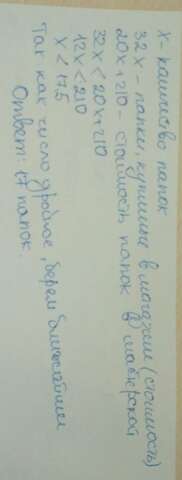 х - количество папок
32х - папки, купленые в магазине (стоимость)
20х+210 - стоимость папок в мастерской
32х < 20х+210
12х < 210
х < 17,5
Так как число дробное, берем ближайшее
Ответ: 17 папок.